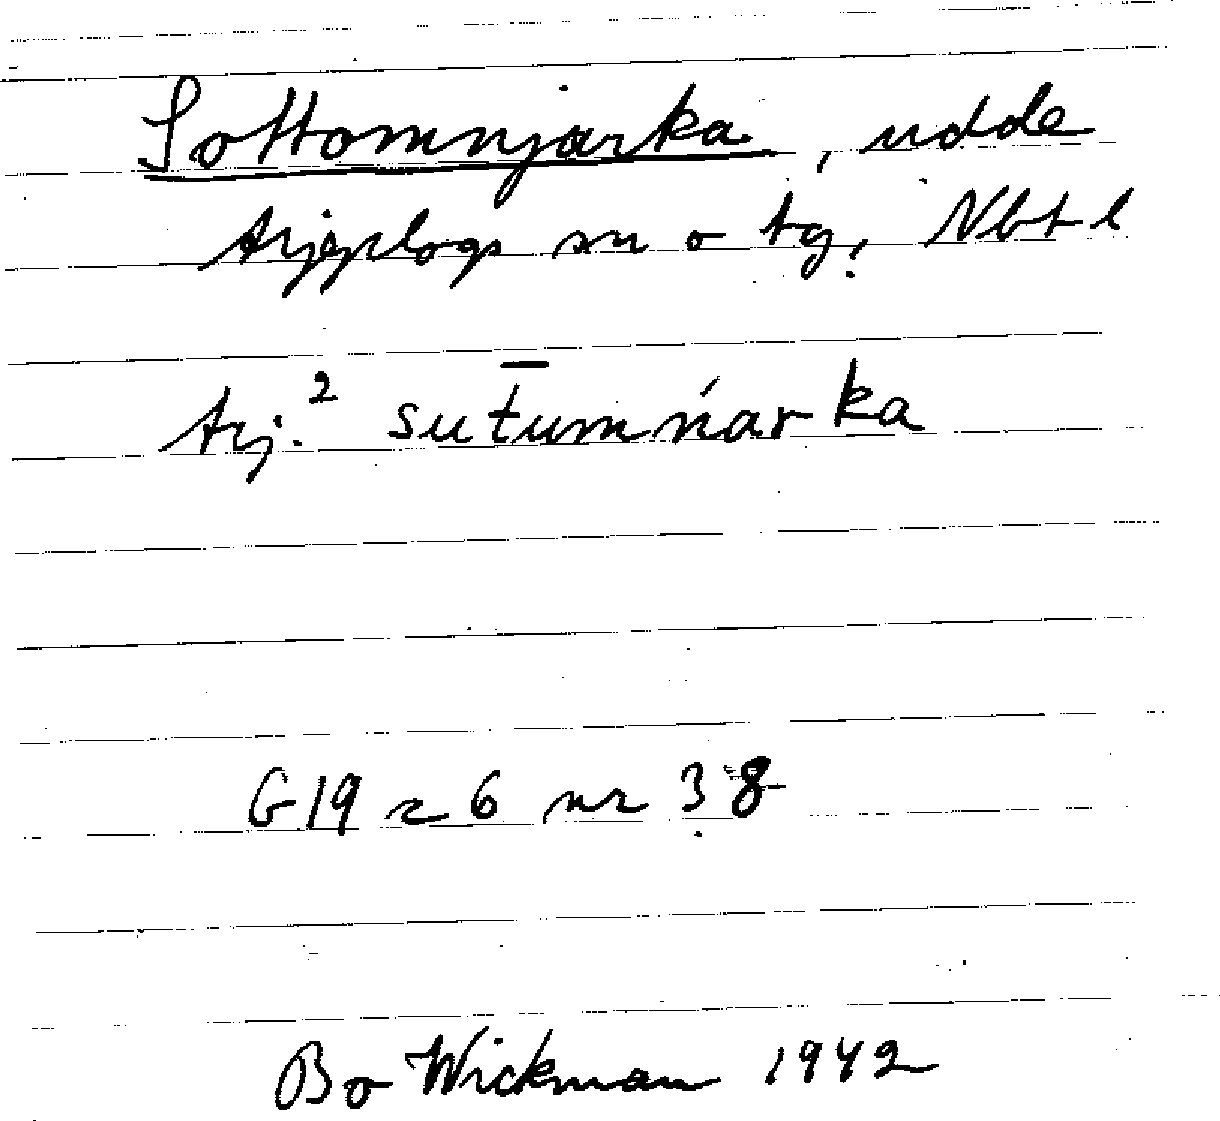 Sottomnjarka, udde
Arjeplogs sn o tg, Nbt l
Arj.² sut̄umńarka
G19 c 6 nr 38
Bo Wickman 1942